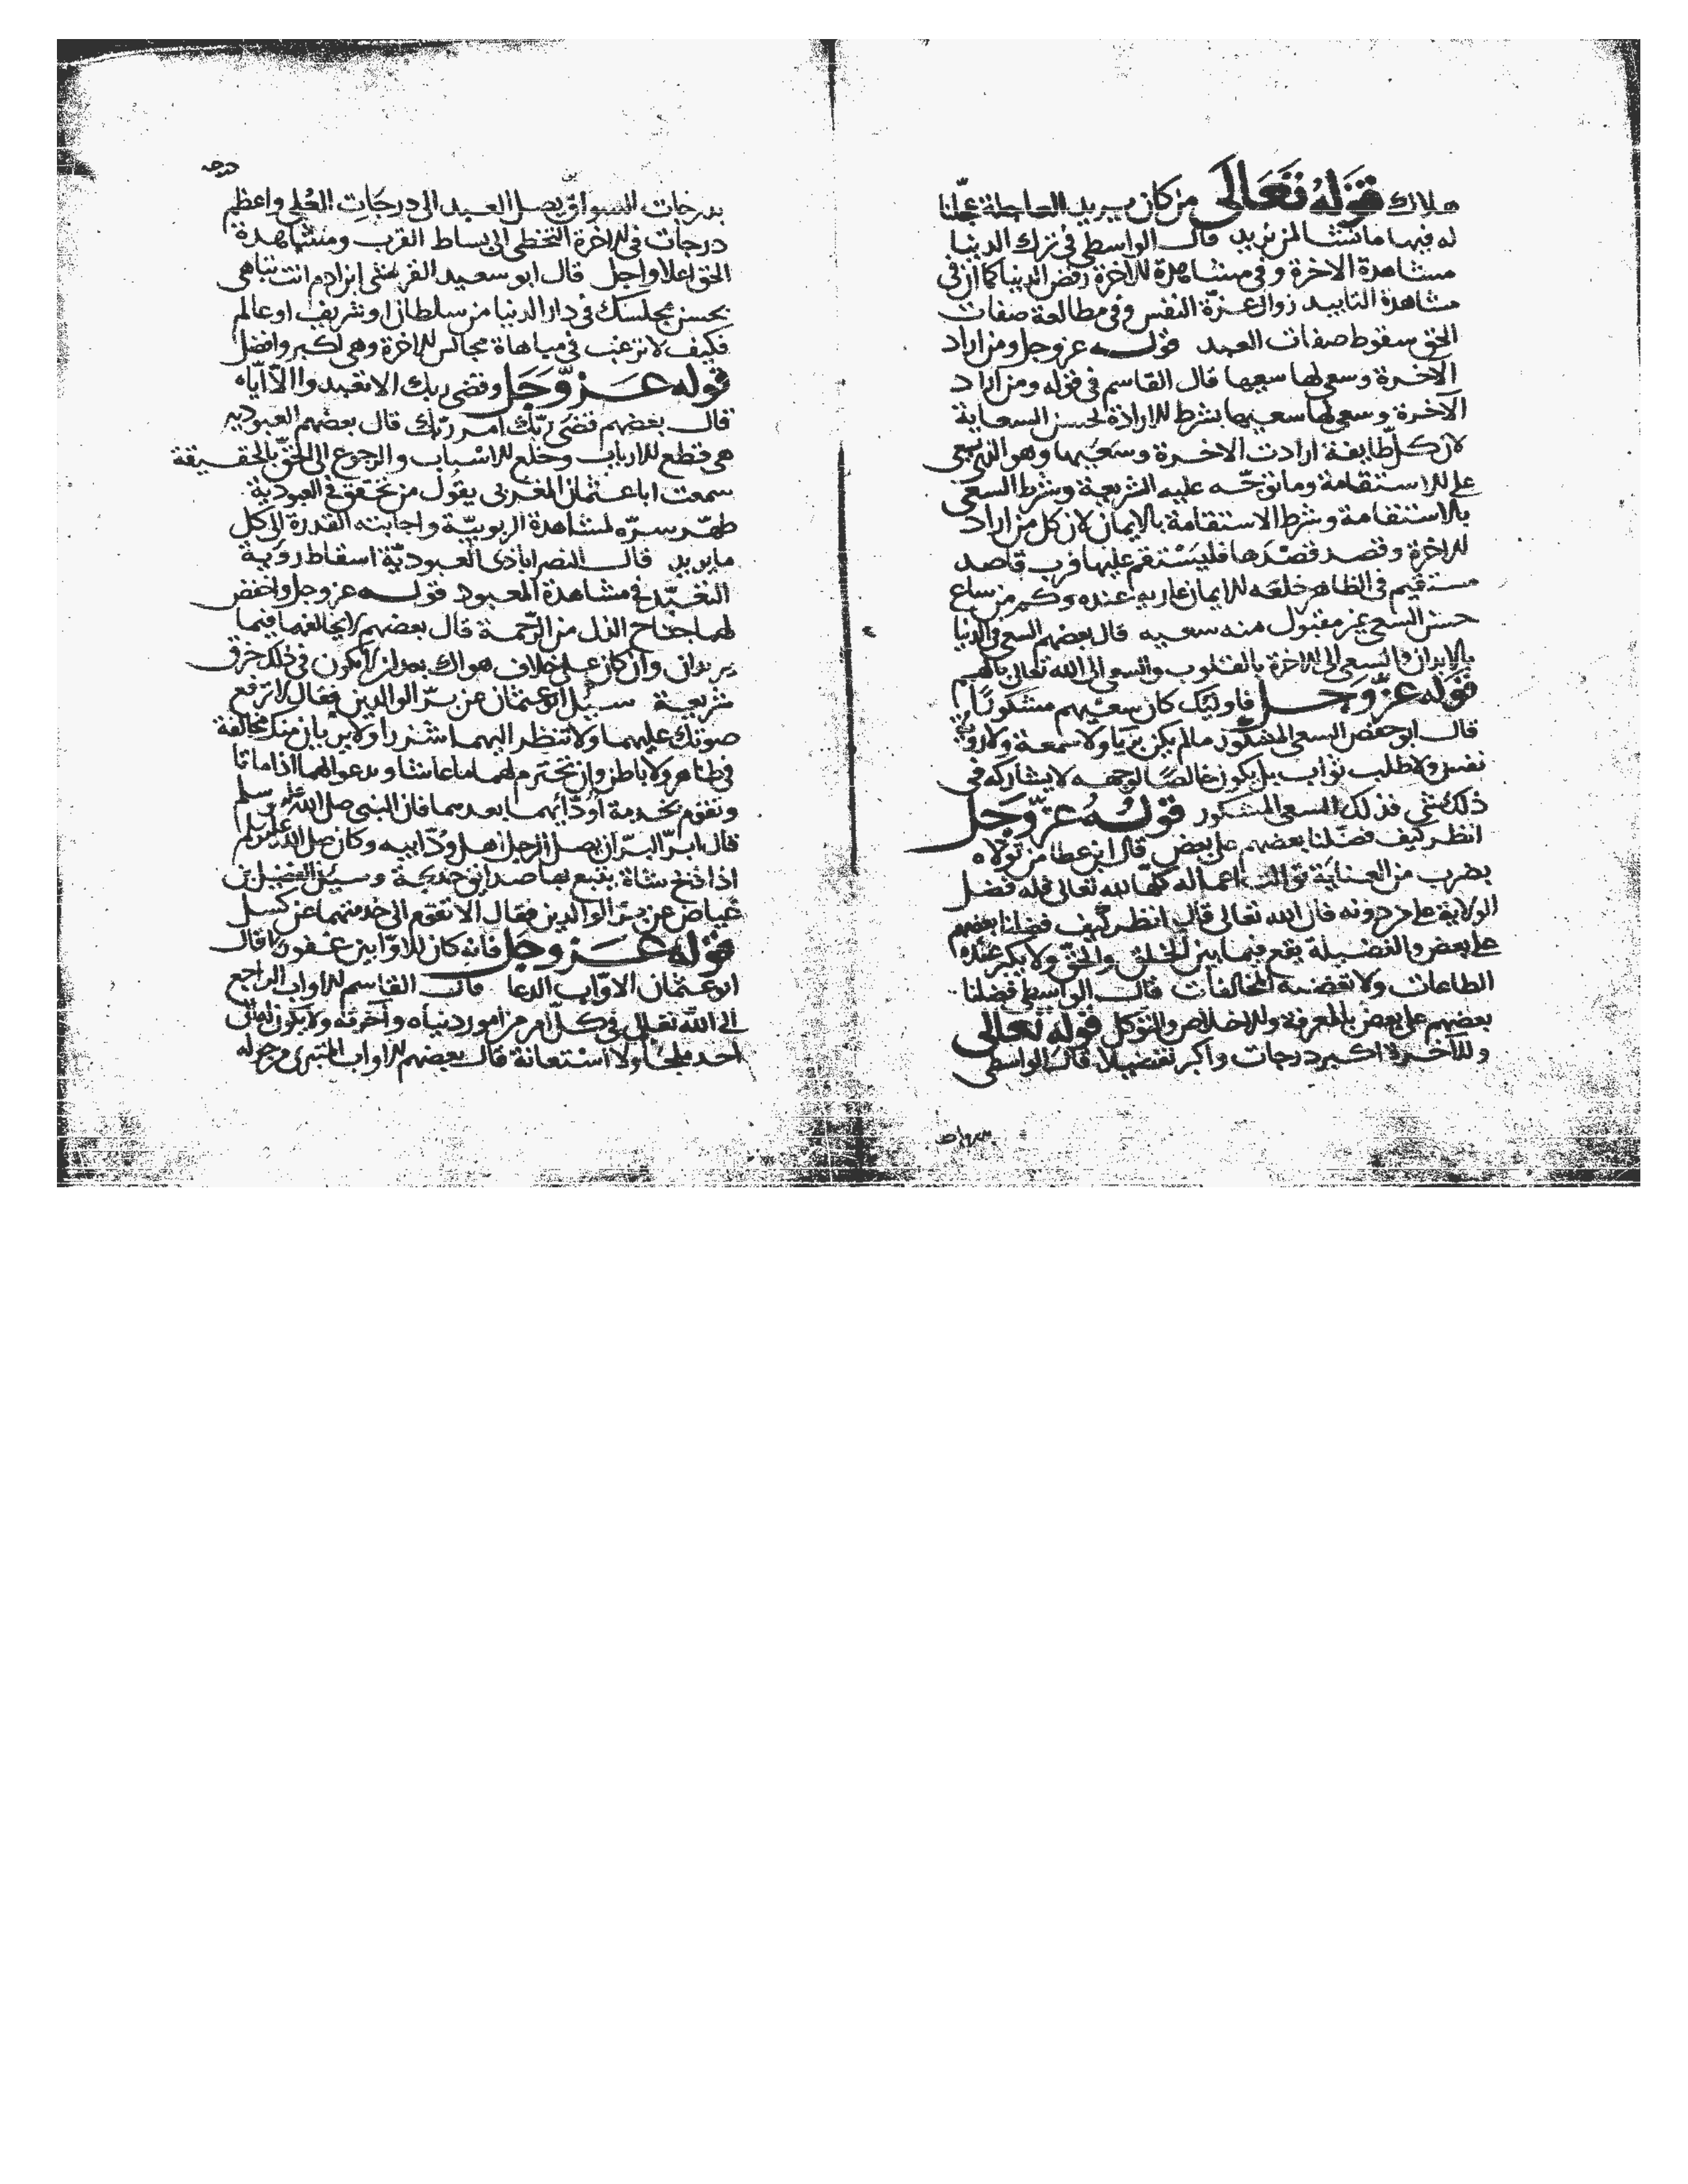 هلاك قوله تعالى من كان يريد العاجلة عجلنا
له فيها ما نشا لمن نريد قال الواسطى فى ترك الدنيا
مشاهدة الاخرة وفى مشاهدة الاخرة رفض الدنيا كما ان فى
مشاهدة التابيد زوال عزة النفس وفى مطالعة صفات
الحق سقوط صفات العبد قوله عز وجل ومن اراد
الآخرة وسعى لها سعيها قال القاسم فى قوله ومن اراد
الآخرة وسعى لها سعيها بشرط الارادة لحسن السعاية
لان كل طايفة ارادت الاخرة وسعيها وهو الذى يسعى
على الاستقامة وما توجبه عليه الشريعة وشرط السعى
بالاستقامة وشرط الاستقامة بالايمان لان كل من اراد
الاخرة وقصد قصدها فليستقم عليها فرب قاصد
مستقيم فى الظاهر خلعه الايمان عارية عنده وكم من ساع
حسن السعى غير مقبول منه سعيه قال بعضهم السعى فى الدنيا
بالابدان والسعى الى الاخرة بالقلوب والسعى الى الله تعالى بالهمم
قوله عز وجل فاوليك كان سعيهم مشكورًا
قال ابو حفص السعى المشكور ما لم يكن برياً ولا سمعة ولا روية
نفس ولا طلب ثواب بل يكون خالصًا لوجهه لا يشاركه فى
ذلك شى فذلك السعى المشكور قوله عز وجل
انظر كيف فضلنا بعضهم على بعض قال ابن عطا من تولاه
بضرب من العناية اعماله كلها لله تعالى فله فضل
الولاية على من دونه فان الله تعالى قال انظر كيف فضلنا بعضهم
على بعض والفضيلة يقع فيما بين الخلق والحق ولا عنده
الطاعات ولا تغضبه المخالفات قال الواسطى فضلنا
بعضهم على بعض بالمعرفة والاخلاص والتوكل قوله تعالى
وللاخرة اكبر درجات واكبر تفضيلا قال الواسطى
بدرجات يصل العبد الى درجات العلى واعظم
درجات فى الاخرة التخطى الى بساط القرب ومشاهدة
الحق اعلا واجل قال ابو سعيد القرشى ابن ادم انت تباهى
بحسن مجلسك فى دار الدنيا من سلطان او شريف او عالم
فكيف لا ترغب فى مباهاة مجالس الاخرة وهى اكبر وافضل
قوله عز وجل وقضى ربك الا تعبدوا الا اياه
قال بعضهم قضى ربك امر ربك قال بعضهم العبودية
هى قطع الارباب وخلع الاسباب والرجوع الى الحق بالحقيقة
سمعت ابا عثمان المغربى يقول من تحقق فى العبودية
طهر سره لمشاهدة الربوبية واجابته القدرة الى كل
ما يريد قال النصراباذى العبودية اسقاط روية
التعبد فى مشاهدة المعبود قوله عز وجل واخفض
لهما جناح الذل من الرحمة قال بعضهم لا يخالفهما فيما
يريدان وان كان على خلاف هواك بعد ان لا يكون فى ذلك خرق
شريعة سيل ابو عثمان عن بر الوالدين فقال لا ترفع
صوتك عليهما ولا تنظر اليهما شزرا ولا يريان منك مخالفة
فى ظاهر ولا باطن وان تحترم لهما ما عاشا وتدعو لهما اذا ماتا
وتقوم بخدمة اودّائهما بعدهما فان النبى صلى الله عليه وسلم
قال ابر البر ان يصل الرجل اهل ودّ ابيه وكان صلى الله عليه وسلم
اذا ذبح شاة يتبع بها صدايق خديجة وسيل الفضيل بن
عياض عن بر الوالدين فقال الا تقوم الى خدمتهما عن كسل
قوله عز وجل فانه كان للاوابين غفورا قال
ابو عثمان الاواب الدعا قال القاسم الاواب الراجع
الى الله تعالى فى كل امر من امور دنياه وآخرته ولا يكون له الى
احد ملجأ ولا استعانة قال بعضهم الاواب المتبرى من حوله